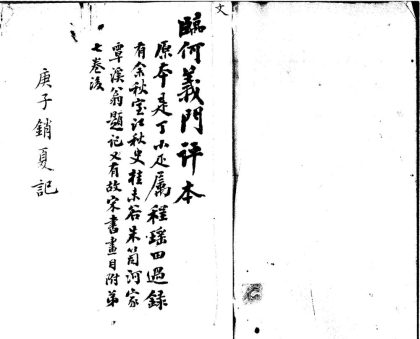 文
臨何義門评本
原本是丁小疋屬程瑶田過録
有余秋室江秋史桂未谷朱笥河家
覃溪翁題记又有故宋書畫目附第
七卷後
庚子銷夏記